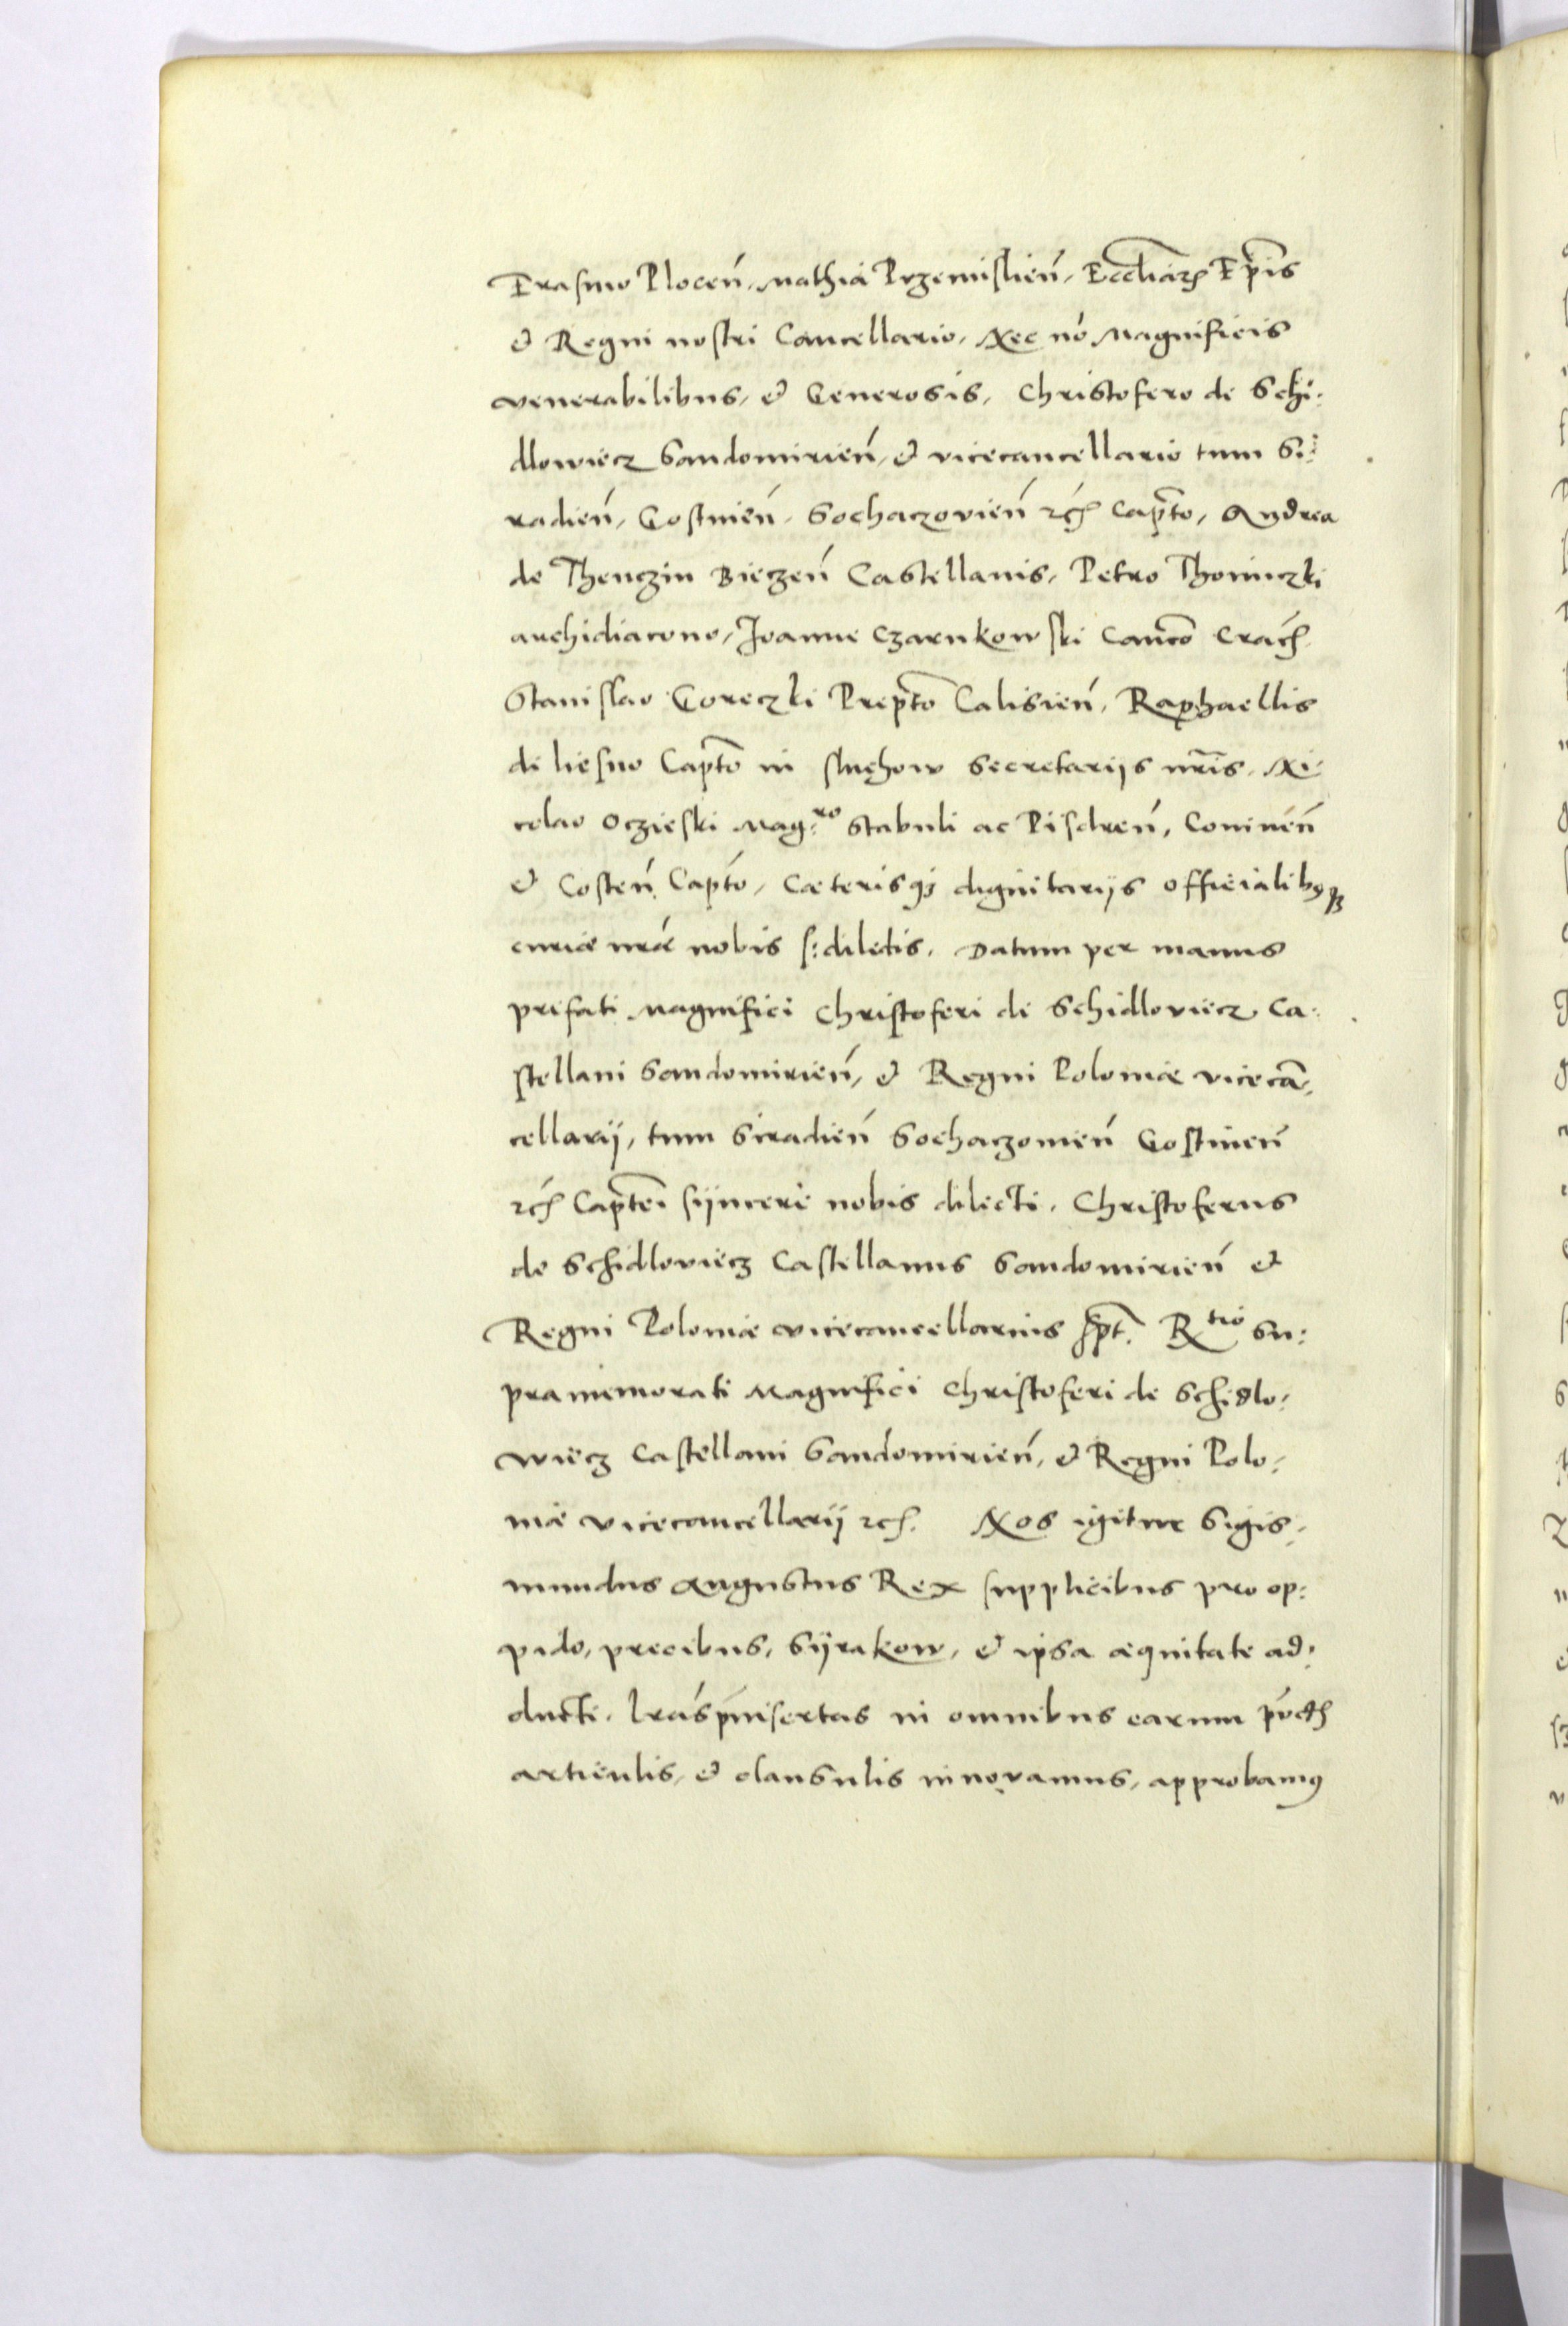 Erasmo Plocen̄, Mathia Przemislien̄, Eccl̄iaꝝ Ep̄is
& Regni nostri Cancellario, Nec nō Magnificis
venerabilibus, & Generosis, Christofero de Schi:
dlowiecz Sandomirien̄, & vicecancellario tum Si:
radien̄, Gostinen̄, Sochaczovien̄ ꝛc̄ Cap̄to, Andrea
de Thenczin Bieczen̄ Castellanis, Petro Thomiczki
archidiacono, Joanne Czarnkowski Canc̄o Crac̄
Stanislao Goreczki Prep̄to Calisien̄, Raphaellis
de liesno Cap̄to in Sluchow Secretarijs nr̄is, Ni:
colao Oczieski Mag:ro Stabuli ac Pisdren̄, Coninen̄
& Costen̄ Cap̄to, Cæterisqꝫ dignitarijs officialibꝰqꝫ
curiæ nr̄æ nobis s: dilectis. Datum per manus
prefati Magnifici Christoferi de Schidloviecz Ca:
stellani Sandomirien̄, & Regni Poloniæ vicecā:
cellarij, tum Siradien̄ Sochaczonien̄ Gostinen̄
ꝛc̄ Cap̄tei sijncerè nobis dilecti. Christoferus
de Schidloviecz Castellanus Sandomirien̄ &
Regni Poloniæ vicecancellarius s̄pt. Rtio Su:
pramemorati Magnifici Christoferi de Schidlo:
wiecz Castellani Sandomirien̄, & Regni Polo:
niæ vicecancellarij ꝛc̄. Nos igitur Sigis:
mundus Augustus Rex supplicibus pro op:
pido, precibus, Sijrakow, & ipsa æquitate ad:
ducti, lr̄as p̄insertas in omnibus earum pūct̄
articulis, & clausulis innovamus, approbamꝰ